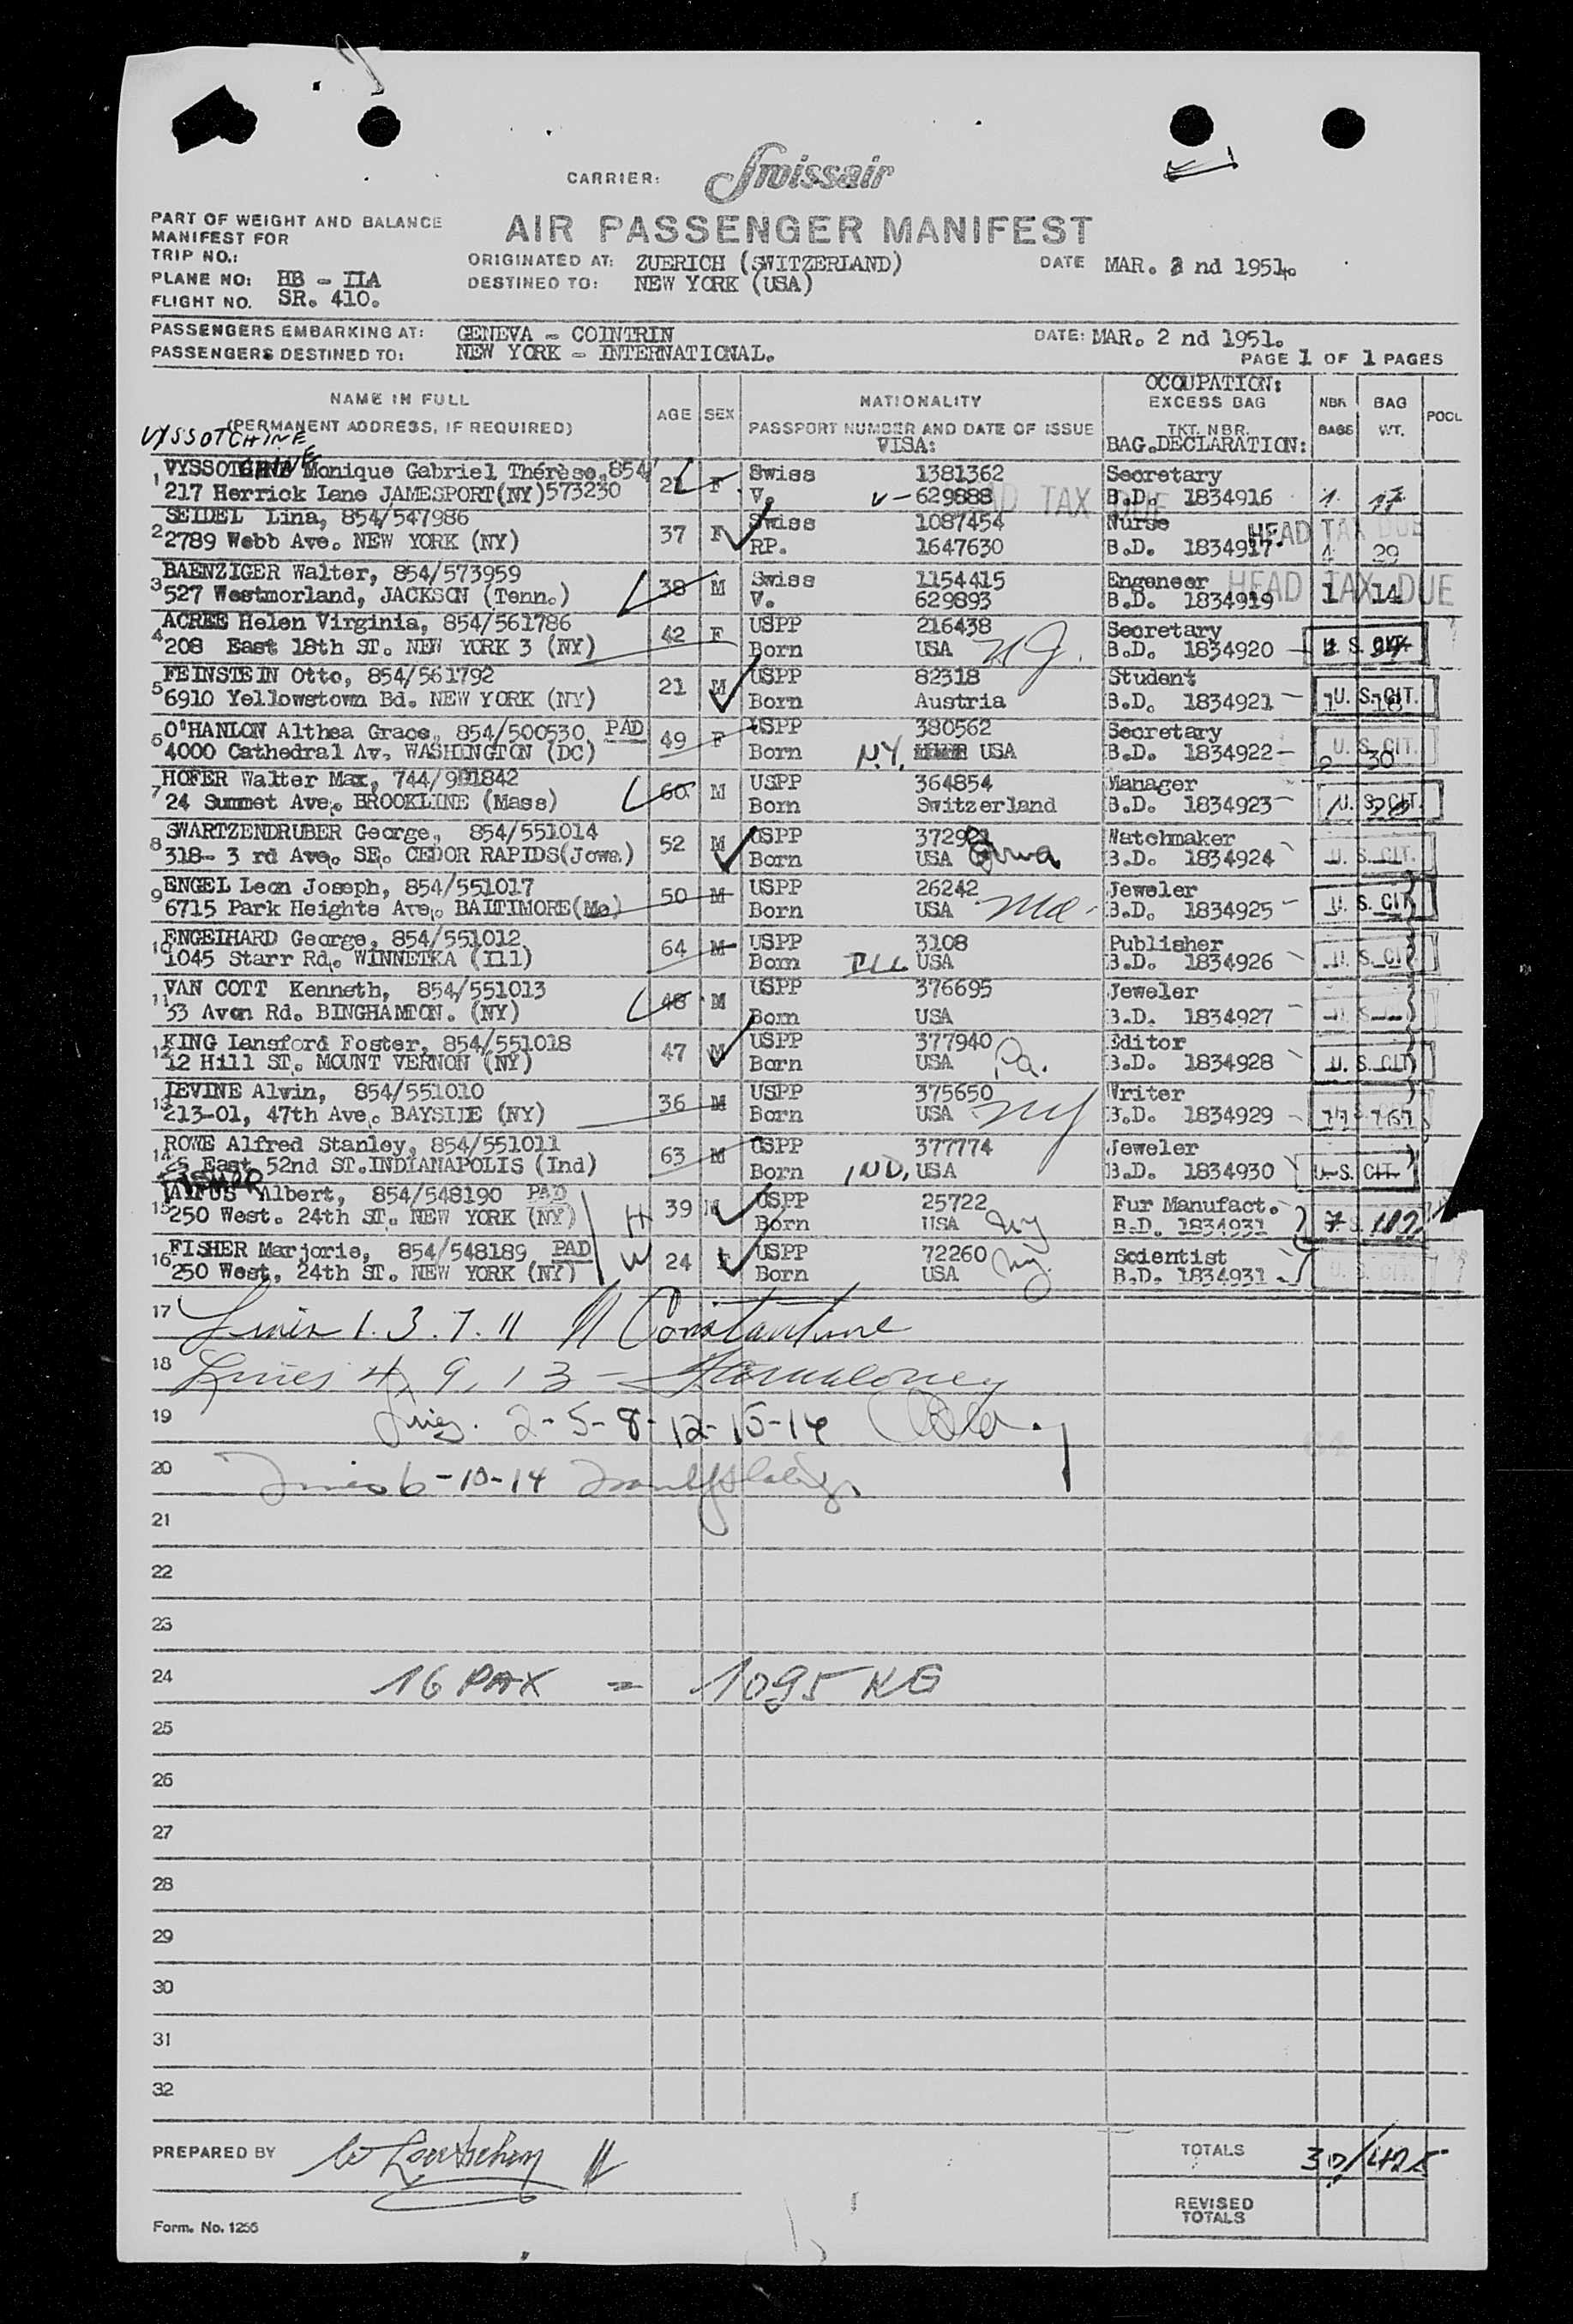 CARRIER: Swissair
PART OF WEIGHT AND BALANCE
MANIFEST FOR
AIR PASSENGER MANIFEST
TRIP NO.:
ORIGINATED AT: ZUERICH (SWITZERLAND) DATE MAR. 2 nd 1951.
PLANE NO: HB - ILA
DESTINED TO: NEW YORK (USA)
FLIGHT NO. SR. 410.
PASSENGERS EMBARKING AT: GENEVA - COINTRIN DATE: MAR. 2 nd 1951.
PASSENGERS DESTINED TO: NEW YORK - INTERNATIONAL.
PAGE 1 OF 1 PAGES
NAME IN FULL AGE SEX NATIONALITY OCCUPATION: EXCESS BAG NBR BAG POCL
(PERMANENT ADDRESS, IF REQUIRED) PASSPORT NUMBER AND DATE OF ISSUE TKT. NBR. BAGS WT.
VISA: BAG.DECLARATION:
VYSSOTCHINE
1 VYSSOTCHINE Monique Gabriel Thérèse, 854/ 21 F Swiss 1381362 Secretary
217 Herrick Lane JAMESPORT(NY)573230 V. V- 629888 B.D. 1834916 1 17
HEAD TAX DUE
2 SEIDEL Lina, 854/547986 37 F Swiss 1087454 Nurse
2789 Webb Ave. NEW YORK (NY) RP. 1647630 B.D. 1834917 29
HEAD TAX DUE
3 BAENZIGER Walter, 854/573959 38 M Swiss 1154415 Engeneer
527 Westmorland, JACKSON (Tenn.) V. 629893 B.D. 1834919 1 14
HEAD TAX DUE
4 ACREE Helen Virginia, 854/561786 42 F USPP 216438 Secretary
208 East 18th ST. NEW YORK 3 (NY) Born USA NJ. B.D. 1834920 U. S. CIT.
5 FEINSTEIN Otto, 854/561792 21 M USPP 82318 Student
6910 Yellowstown Bd. NEW YORK (NY) Born Austria B.D. 1834921 1 18 U. S. CIT.
6 O'HANLON Althea Grace, 854/500530 PAD 49 F USPP 380562 Secretary
4000 Cathedral Av. WASHINGTON (DC) Born N.Y. USA B.D. 1834922 2 30 U. S. CIT.
7 HOFER Walter Max, 744/901842 60 M USPP 364854 Manager
24 Summet Ave. BROOKLINE (Mass) Born Switzerland B.D. 1834923 U. S. CIT.
8 SWARTZENDRUBER George, 854/551014 52 M USPP Watchmaker
318- 3 rd Ave. SE. CEDOR RAPIDS(Jowa) Born USA Iowa B.D. 1834924 U. S. CIT.
9 ENGEL Leon Joseph, 854/551017 50 M USPP 26242 Jeweler
6715 Park Heights Ave. BALTIMORE(Mo) Born USA Md. B.D. 1834925 U. S. CIT.
10 ENGELHARD George, 854/551012 64 M USPP 3108 Publisher
1045 Starr Rd. WINNETKA (Ill) Born ILL USA B.D. 1834926 U. S. CIT.
11 VAN COTT Kenneth, 854/551013 48 M USPP 376695 Jeweler
33 Avon Rd. BINGHAMTON. (NY) Born USA B.D. 1834927 U. S.
12 KING Lansford Foster, 854/551018 47 M USPP 377940 Editor
12 Hill ST. MOUNT VERNON (NY) Born USA Pa. B.D. 1834928 U. S. CIT
13 LEVINE Alvin, 854/551010 36 M USPP 375650 Writer
213-01, 47th Ave. BAYSIDE (NY) Born USA NY B.D. 1834929
14 ROWE Alfred Stanley, 854/551011 63 M USPP 377774 Jeweler
25 East 52nd ST.INDIANAPOLIS (Ind) Born IND, USA B.D. 1834930 U. S. CIT.
FISHER
15 Albert, 854/548190 PAD H 39 M USPP 25722 Fur Manufact.
250 West. 24th ST. NEW YORK (NY) Born USA NY B.D. 1834931 7 102
16 FISHER Marjorie, 854/548189 PAD W 24 F USPP 72260 Scientist
250 West, 24th ST. NEW YORK (NY) Born USA NY. B.D. 1834931 U. S. CIT.
17 Lines 1.3.7.11 Constantine
18 Lines 4, 9, 13 -
19 Lines. 2-5-8-12-15-16
20 Lines 6-10-14
21
22
23
24 16 PAX = 1095 KG
25
26
27
28
29
30
31
32
PREPARED BY TOTALS 30/425
REVISED
TOTALS
Form. No. 1256